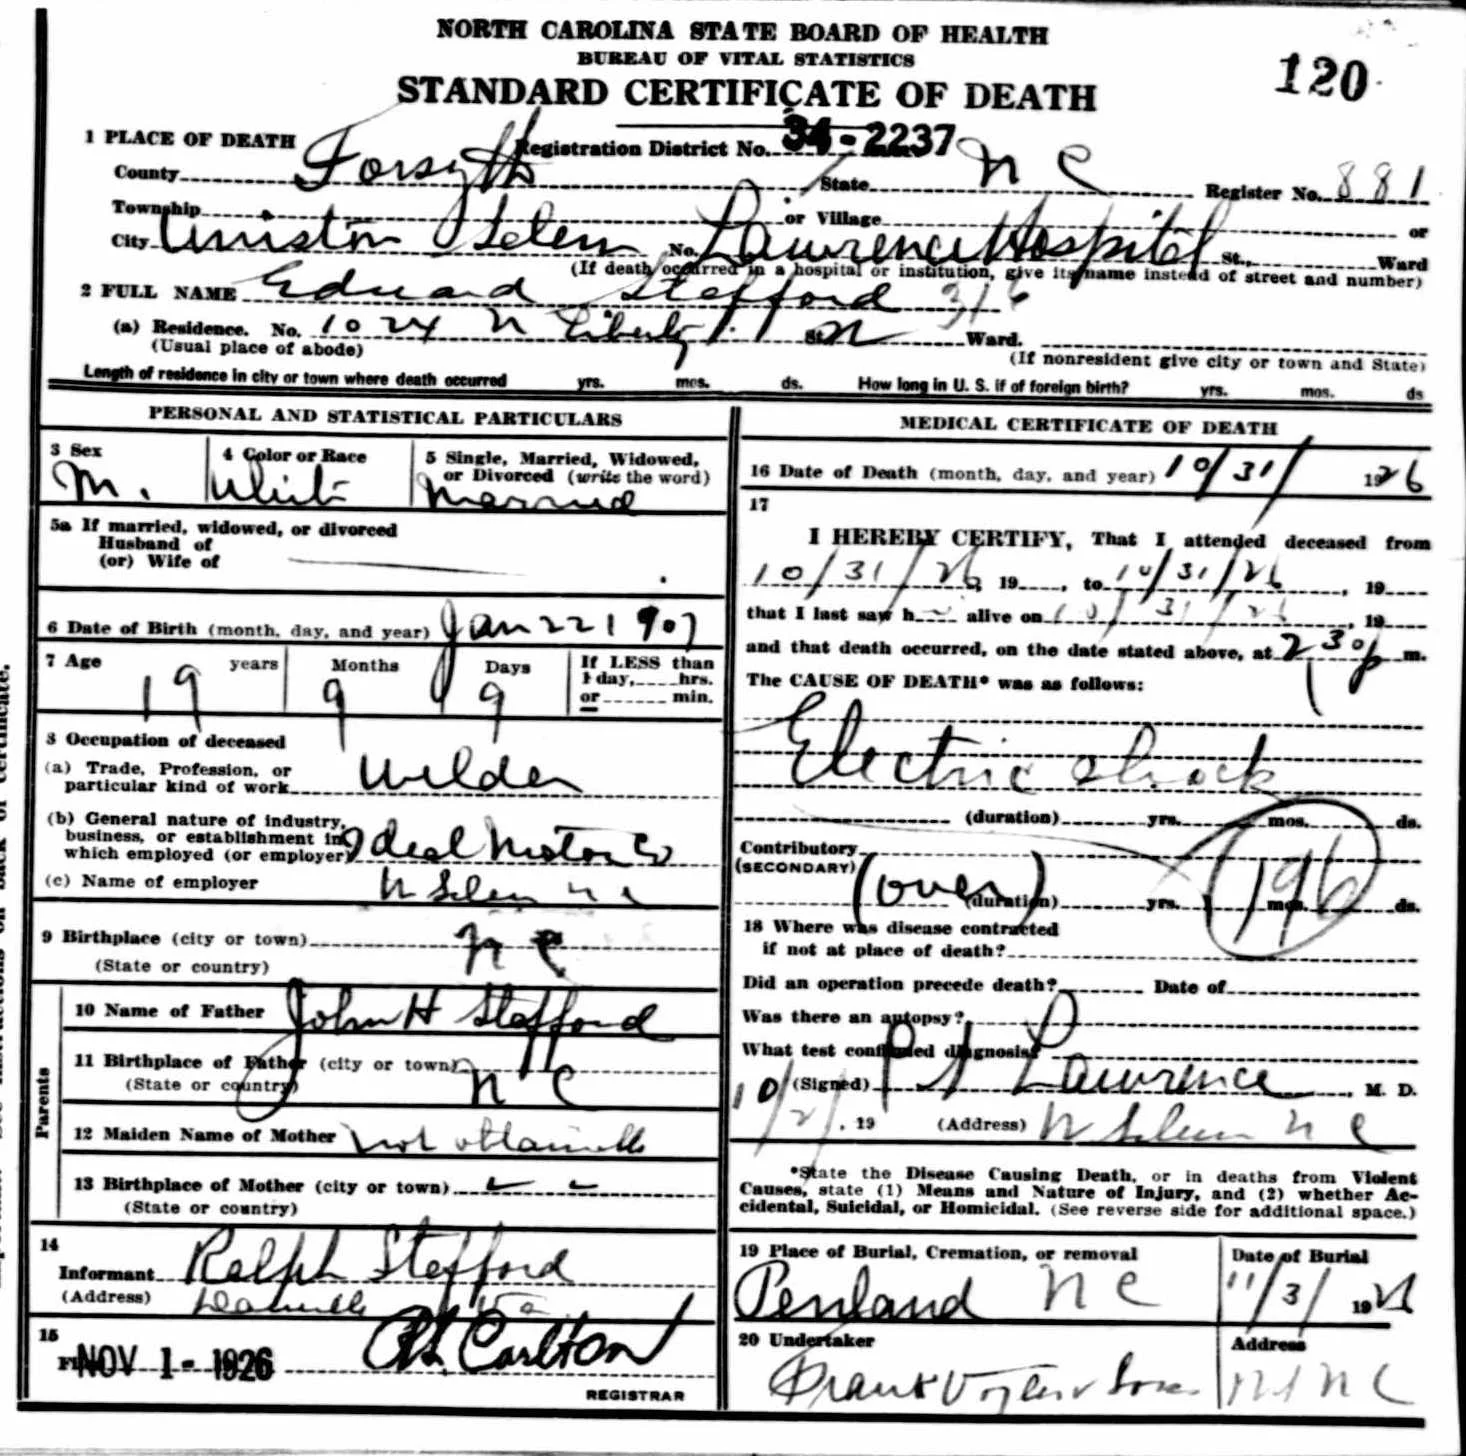 NORTH CAROLINA STATE BOARD OF HEALTH
BUREAU OF VITAL STATISTICS
STANDARD CERTIFICATE OF DEATH
120
1 PLACE OF DEATH
Registration District No. 34-2237
County Forsyth State N C Register No. 881
Township or Village or
City Winston Salem No. Lawrence Hospital St., Ward
(If death occurred in a hospital or institution, give its name instead of street and number)
2 FULL NAME Edward Stafford 316
(a) Residence. No. 1024 N Liberty St. Ward.
(Usual place of abode) (If nonresident give city or town and State)
Length of residence in city or town where death occurred yrs. mos. ds. How long in U. S. if of foreign birth? yrs. mos. ds
PERSONAL AND STATISTICAL PARTICULARS
3 Sex 4 Color or Race 5 Single, Married, Widowed,
or Divorced (write the word)
M. White Married
5a If married, widowed, or divorced
Husband of
(or) Wife of
6 Date of Birth (month, day, and year) Jan 22 1907
7 Age 19 years 9 Months 9 Days If LESS than
1 day, hrs.
or min.
8 Occupation of deceased
(a) Trade, Profession, or
particular kind of work Welder
(b) General nature of industry,
business, or establishment in
which employed (or employer) Ideal Motor Co
(c) Name of employer W Salem N C
9 Birthplace (city or town) N C
(State or country)
Parents
10 Name of Father John H Stafford
11 Birthplace of Father (city or town) N C
(State or country)
12 Maiden Name of Mother not obtainable
13 Birthplace of Mother (city or town)
(State or country)
14
Informant Ralph Stafford
(Address) Danville Va
15
NOV 1 - 1926 Carlton
REGISTRAR
MEDICAL CERTIFICATE OF DEATH
16 Date of Death (month, day, and year) 10/31/1926
17
I HEREBY CERTIFY, That I attended deceased from
10/31/26, 19 , to 10/31/26, 19
that I last saw h alive on 10/31/26, 19
and that death occurred, on the date stated above, at 230 p m.
The CAUSE OF DEATH* was as follows:
Electric shock
(duration) yrs. mos. ds.
Contributory
(SECONDARY) (over) 196
(duration) yrs. mos. ds.
18 Where was disease contracted
if not at place of death?
Did an operation precede death? Date of
Was there an autopsy?
What test confirmed diagnosis?
(Signed) Lawrence, M. D.
, 19 (Address) W Salem N C
*State the Disease Causing Death, or in deaths from Violent
Causes, state (1) Means and Nature of Injury, and (2) whether Ac-
cidental, Suicidal, or Homicidal. (See reverse side for additional space.)
19 Place of Burial, Cremation, or removal Date of Burial
Penland N C 11/3/
20 Undertaker Address
Frank Vogler & Sons N C